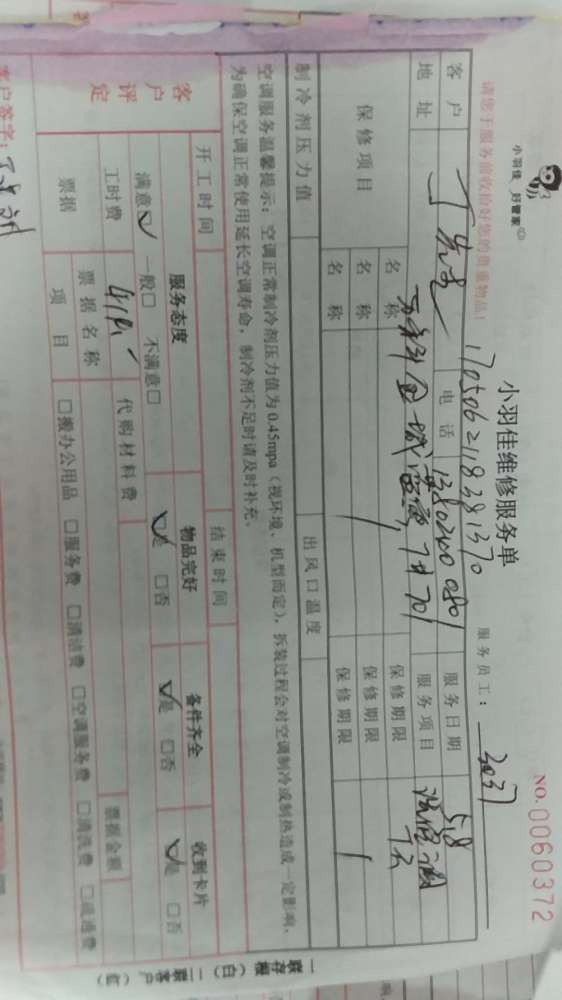 小羽佳 好管家
请您于服务前收拾好您的贵重物品!
小羽佳维修服务单
NO.0060372
1705062118381370
服务员工: 3037
客户 丁先生 电话 13802400801 服务日期 5.8
地址 7栋701 服务项目
保修项目 名称 保修期限
名称 保修期限
名称 保修期限
制冷剂压力值 出风口温度
空调服务温馨提示:空调正常制冷剂压力值为0.45mpa(视环境、机型而定),拆装过程会对空调制冷或制热造成一定影响,
为确保空调正常使用延长空调寿命,制冷剂不足时请及时补充。
开工时间 结束时间
客户评定 服务态度 物品完好 备件齐全 收到卡片
满意☑ 一般□ 不满意□ ☑是 □否 ☑是 □否 ☑是 □否
工时费 代购材料费
票据 票据名称 票据金额
项目 □搬办公用品 □服务费 □清洁费 □空调服务费 □清洗费 □疏通费
客户签字:
一联存根(白) 二联客户(红)